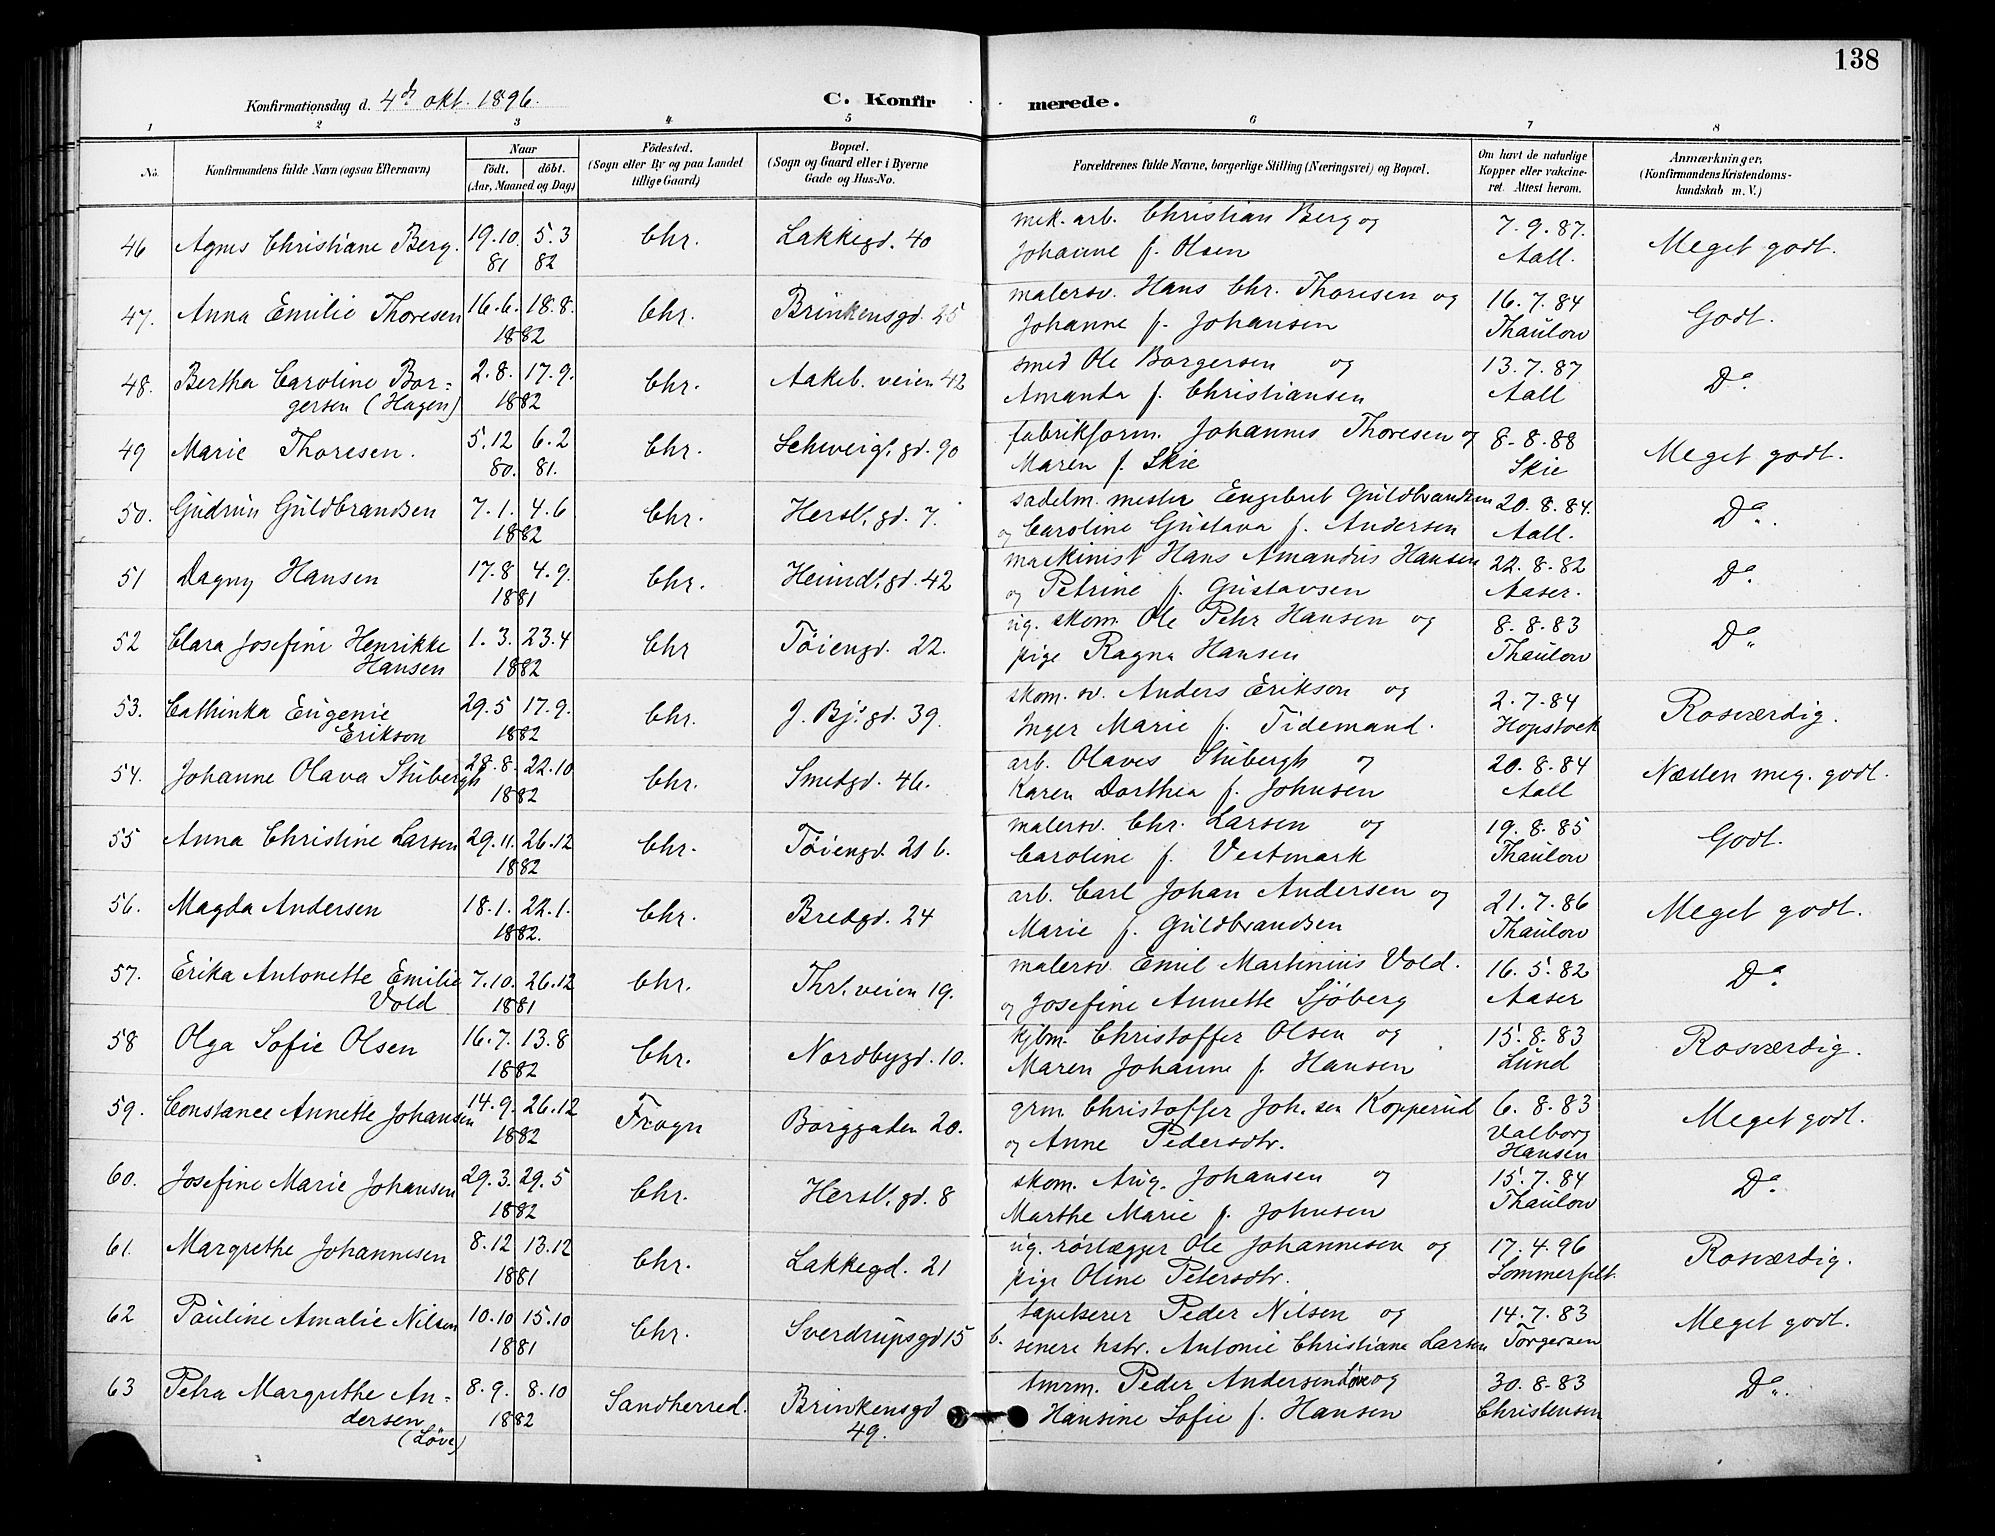 138
Konfirmationsdag d. 4de okt. 1896. C. Konfir merede.
1 2 3 4 5 6 7 8
No. Konfirmandens fulde Navn (ogsaa Efternavn) Naar födt, döbt. (Aar, Maaned og Dag) Födested. (Sogn eller By og paa Landet tillige Gaard) Bopæl. (Sogn og Gaard eller i Byerne Gade og Hus-No. Forældrenes fulde Navne, borgerlige Stilling (Næringsvei) og Bopæl. Om havt de naturlige Kopper eller vakcineret. Attest herom. Anmærkninger. (Konfirmandens Kristendomskundskab m. V.)
46 Agnes Christiane Berg. 19.10. 5.3 Chr. Lakkegd. 40 mek. arb. Christian Berg og 7.9.87. Meget godt.
81 82 Johanne f. Olsen Aall.
47. Anna Emilie Thoresen 16.6. 18.8. Chr. Brinkensgd. 25 malersv. Hans Chr. Thoresen og 16.7.84 Godt.
1882 Johanne f. Johansen Thaulow
48. Bertha Caroline Bor= 2.8. 17.9. Chr. Aakeb. veien 42 smed Ole Borgersen og 13.7.87 Do.
gersen (Hagen) 1882 Amanda f. Christiansen Aall
49 Marie Thoresen. 5.12 6.2 Chr. Schweig. gd. 90 fabrikform. Johannes Thoresen og 8.8.88 Meget godt.
80. 81. Maren f. Skie Skie
50. Gudrun Guldbrandsen 7.1. 4.6 Chr. Hersl. gd. 7. sadelm. mester Engebret Guldbrandsen 20.8.84. Do.
1882 og Caroline Gustava f. Andersen Aall.
51 Dagny Hansen 17.8 4.9. Chr. Heimdl. gd. 42 maskinist Hans Amandus Hansen 22.8.82 Do.
1881 og Petrine f. Gustavsen Aaser.
52 Clara Josefine Henrikke 1.3. 23.4 Chr Töiengd. 22. ug. skom. Ole Pehr Hansen og 8.8.83 Do.
Hansen 1882 pige Ragna Hansen Thaulow
53. Cathinka Eugenie 29.5 17.9. Chr. J. Bj. gd. 39. skom. sv. Anders Erikson og 2.7.84 Rosværdig.
Erikson 1882 Inger Marie f. Tidemand. Hopstock
54. Johanne Olava Stubergh 28.8. 22.10 Chr. Smedgd. 46. arb. Olaves Stubergh og 20.8.84 Næsten meg. godt.
1882 Karen Dorthea f. Johnsen Aall
55 Anna Christine Larsen 29.11. 26.12 Chr. Töiengd. 21 b. malersv. Chr. Larsen og 19.8.85 Godt.
1882 Caroline f. Vestmark Thaulow
56. Magda Andersen 18.1. 22.1. Chr. Bredgd. 24 arb. Carl Johan Andersen og 21.7.86 Meget godt.
1882. Marie f. Guldbrandsen Thaulow
57. Erika Antonette Emilie 7.10. 26.12 Chr. Thrl. veien 19. malersv. Emil Martinius Vold. 16.5.82 Do.
Vold 1881 og Josefine Annette Sjöberg Aaser
58 Olga Sofie Olsen 16.7. 13.8 Chr. Nordbygd. 10. kjbm. Christoffer Olsen og 15.8.83 Rosværdig.
1882 Maren Johanne f. Hansen Lund
59. Constance Annette Johansen 14.9. 26.12 Frogn Borggaden 20. grm. Christoffer Joh.sen Kopperud 6.8.83 Meget godt.
1882 og Anne Pedersdtr. Valborg Hansen
60. Josefine Marie Johansen 29.3. 29.5 Chr. Hersl. gd. 8 skom. Aug. Johansen og 15.7.84 Do.
1882 Marthe Marie f. Johnsen Thaulow
61. Margrethe Johannesen 8.12 13.12 Chr. Lakkegd. 21 ug. rörlægger Ole Johannesen og 17.4.96 Rosværdig.
1881 pige Oline Petersdtr. Sommerfelt
62 Pauline Amalie Nilsen 10.10 15.10 Chr. Sverdrupsgd 15 b. tapetserer Peder Nilsen og 14.7.83 Meget godt.
1881 senere hstr. Antonie Christiane Larsen Torgersen
63 Petra Margrethe An= 8.9. 8.10 Sandherred. Brinkensgd 49. tmrm. Peder Andersen Löve og 30.8.83 Do.
dersen (Löve) 1882 Hansine Sofie f. Hansen Christensen